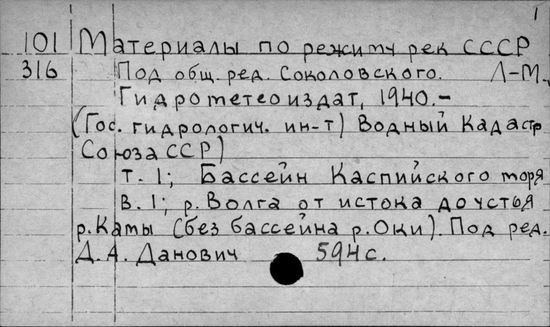 1
101 Материалы по режиму рек СССР
316 Под общ. ред. Соколовского. Л-М.,
Гидрометеоиздат, 1940.-
(Гос. гидрологич. ин-т) Водный Кадастр
Союза ССР)
т. 1; Бассейн Каспийского моря
в. 1; р. Волга от истока до устья
р. Камы (без бассейна р. Оки). Под ред.
Д. А. Данович 594 с.